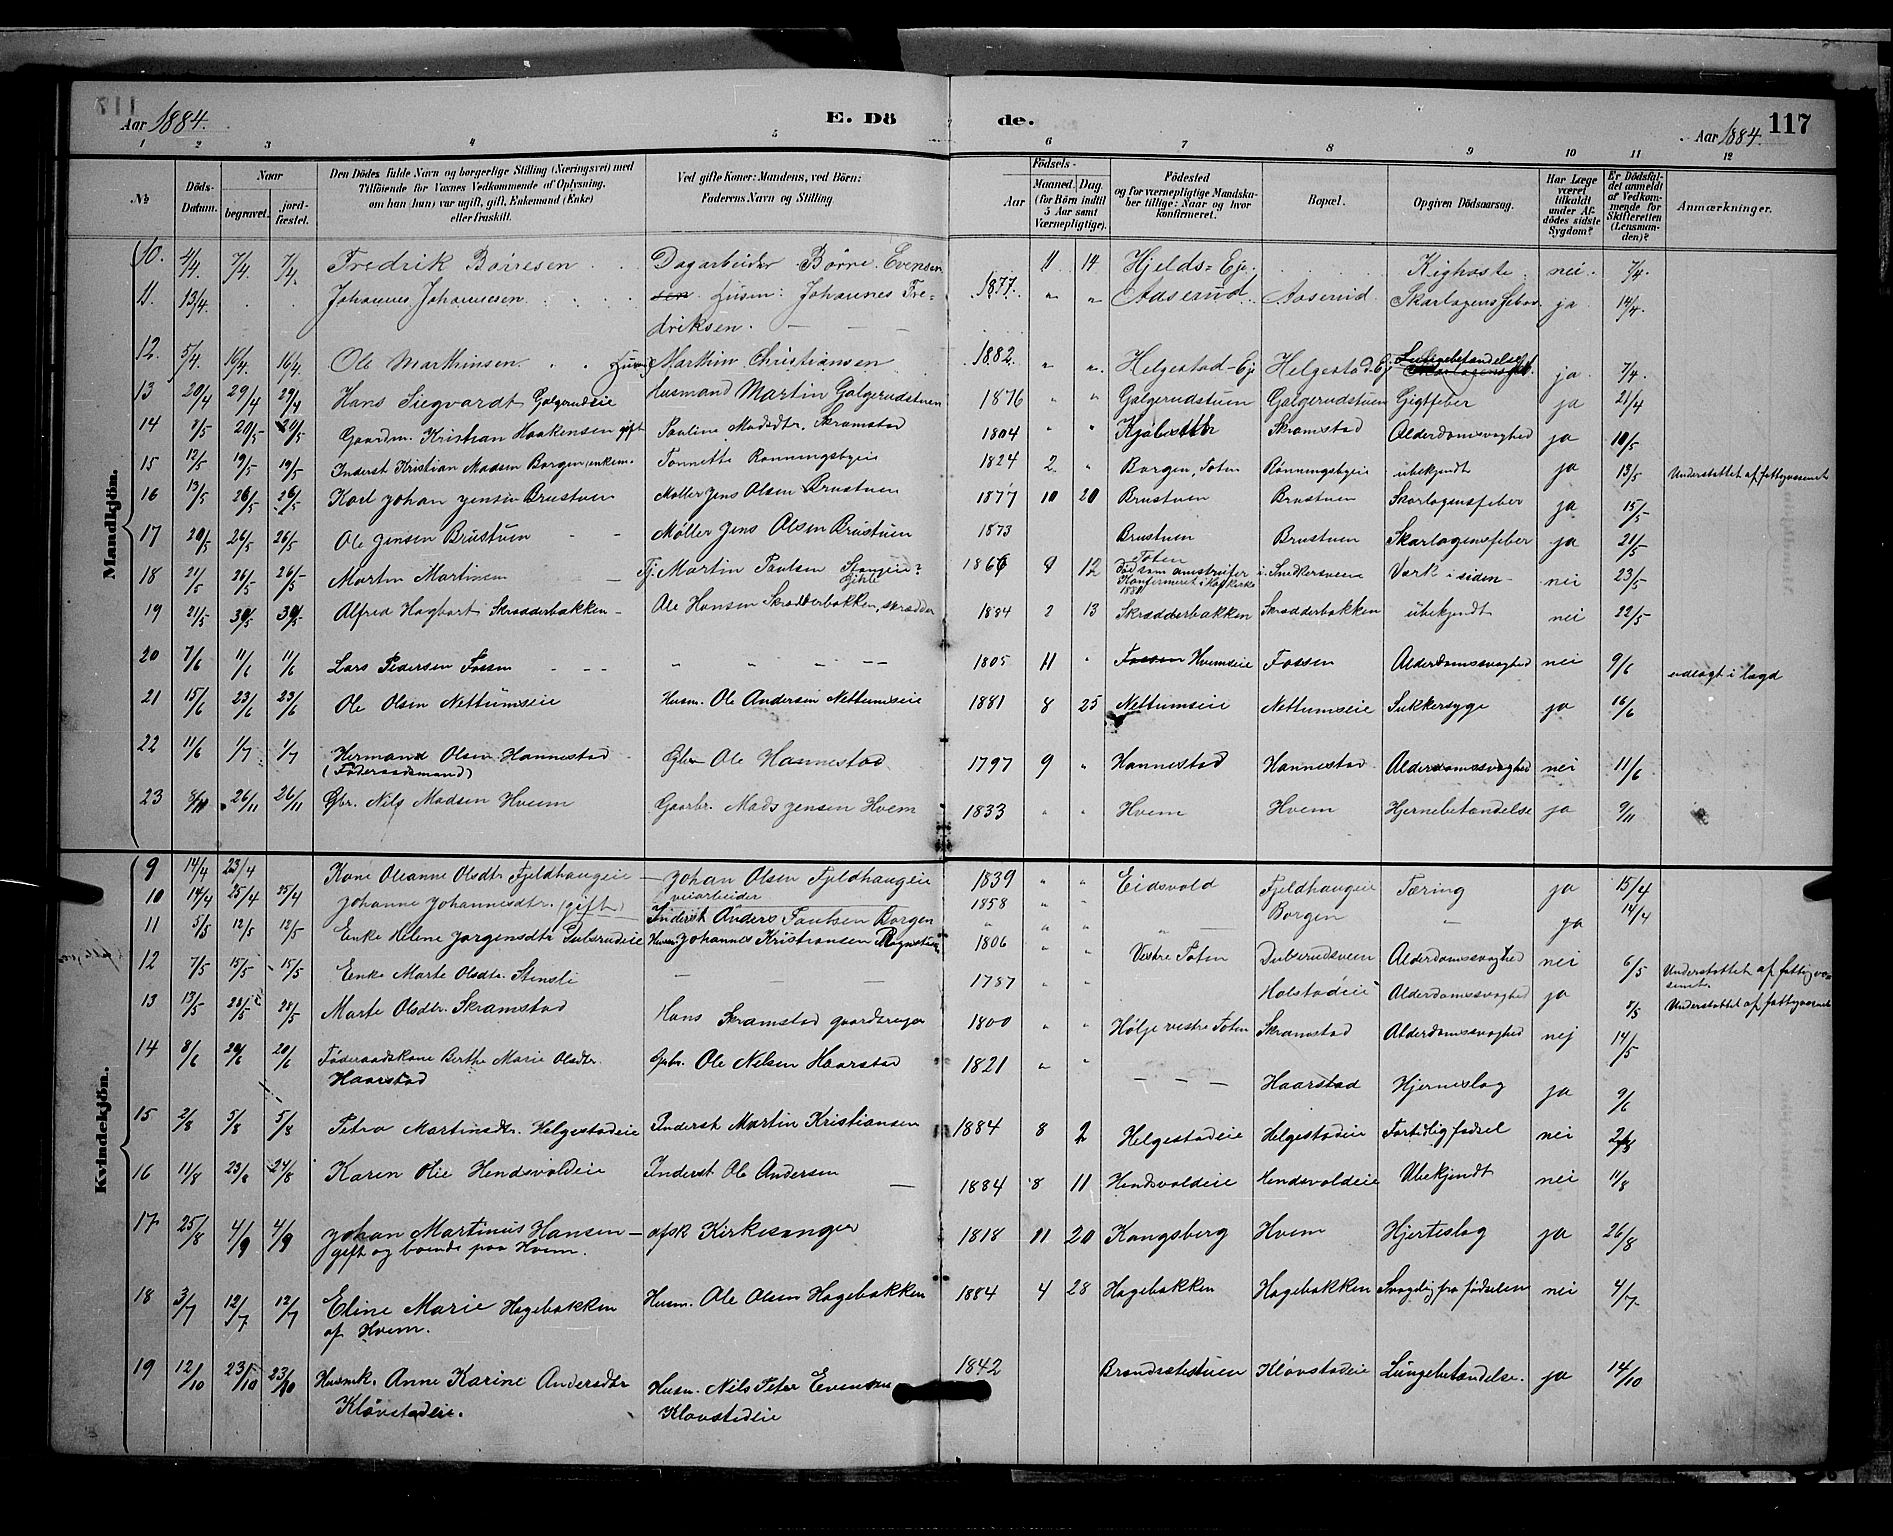 Aar 1884. E. Dö de. Aar 1884. 117
1 2 3 4 5 6 7 8 9 10 11 12
№ Döds-Datum. Naar begravet. jordfæstet. Den Dödes fulde Navn og borgerlige Stilling (Næringsvei) med Tilföiende for Voxnes Vedkommende af Oplysning, om han (hun) var ugift, gift, Enkemand (Enke) eller fraskilt. Ved gifte Koner: Mandens, ved Börn: Faderens Navn og Stilling. Födsels- Aar Maaned. Dag. (for Börn indtil 5 Aar samt Værnepligtige). Födested og for værnepligtige Mandskaber tillige: Naar og hvor konfirmeret. Bopæl. Opgiven Dödsaarsag. Har Læge været tilkaldt under Afdödes sidste Sygdom? Er Dödsfaldet anmeldt af Vedkommende for Skifteretten (Lensmanden)? Anmærkninger.
Mandkjön.
10. 4/4. 7/4. 7/4. Fredrik Børresen Dagarbeider Børre Evensen 11 14 Hjelds=Eje. Kighoste nei. 7/4.
11. 13/4. Johannes Johannesen Husm: Johannes Fre- 1877. " " Aaserud Aaserud. Skarlagensfeber ja 14/4.
driksen.
12. 5/4. 16/4. 16/4. Ole Marthinsen. Husm. Marthin Christiansen 1882. " " Helgestad-Ej Helgestad-Ej Lungebetændelse ja 7/4.
13 20/4 29/4 29/4 Hans Siegvardt Galgerudseie Husmand Martin Galgerudstuen 1876 " " Galgerudstuen Galgerudstuen Gigtfeber ja 21/4
14 2/5 20/5 20/5 Gaardm. Kristian Haakensen gift Pauline Madsdtr. Skramstad 1804 " " Skramstad Alderdomssvaghed ja 10/5
15 12/5 19/5 19/5 Inderst Kristian Madsen Borgen enkem. Tonnette Rønningsbyeie 1824 2. " Borgen, Toten Rønningsbyeie ubekjendt ja 13/5 Understøttet af fattigvæsenet
16 13/5 26/5 26/5 Karl Johan Jensen Brustuen Møller Jens Olsen Brustuen 1877 10 20 Brustuen Brustuen Skarlagensfeber ja 15/5
17 20/5 26/5 26/5 Ole Jensen Brustuen Møller Jens Olsen Brustuen 1873 Brustuen Brustuen Skarlagensfeber ja 21/5
18 21/5 26/5 26/5 Martin Martinsen Tj. Martin Paulsen 1866 9 12 Toten Konfirmeret i Hofkirke Snedkersveen Værk i siden nei 23/5
19 21/5 30/5 30/5 Alfred Hagbart Skrædderbakken Ole Hansen Skrædderbakken, skrædder 1884 2 13 Skrædderbakken Skrædderbakken ubekjendt nei 22/5
20 7/6 11/6 11/6 Lars Pedersen Fossen " " " - - 1805 11 " Fossen Hvemseie Fossen Alderdomssvaghed nei 9/6 udlagt i lægd
21 15/6 23/6 23/6 Ole Olsen Nettumseie Husm. Ole Andersen Nettumseie 1881 8 25 Nettumseie Nettumseie Sukkersyge ja 16/6
22 11/6 1/7 1/7 Hermand Olsen Hannestad Gbr. Ole Hannestad. 1797 9 " Hannestad Hannestad Alderdomssvaghed nei 11/6
(Føderaadsmand)
23 8/11 26/11 26/11 Gbr. Nils Madsen Hvem Gaarbr. Mads Jensen Hvem 1833 " " Hvem Hvem Hjernebetændelse ja 9/11
Kvindekjön.
9 14/4 23/4 Kone Oleanne Olsdtr Fjeldhaugeie Johan Olsen Fjeldhaugeie 1839 " " Eidsvold Fjeldhaugeie Tæring ja 15/4
veiarbeider
10 14/4 25/4 25/4 Johanne Johannesdtr. (gift) Inderst Anders Paulsen Borgen 1858 " " Borgen " ja 14/4
11 5/5 12/5 12/5 Enke Helene Jørgensdtr Dulsrudeie Husm. Johannes Kristiansen 1806 " " Vestre Toten Dulserudsveen Alderdomssvaghed nei 6/5 Understøttet af fattigvæ-
senet
12 7/5 15/5 15/5 Enke Marte Olsdtr. Stensli 1787 " " Holstadeie Alderdomssvaghed ja 8/5 Understøttet af fattigvæsenet
13 13/5 28/5 28/5 Marte Olsdtr. Skramstad Hans Skramstad gaardsieger 1800 " " Hølje vestre Toten Skramstad Alderdomssvaghed nej 14/5
14 8/6 20/6 20/6 Føderaadskone Berthe Marie Olsdtr. Gbr. Ole Nilsen Haarstad 1821 " " - - - Haarstad Hjerneslag ja 9/6
Haarstad
15 2/8 5/8 5/8 Petra Martinsdtr. Helgestadeie Inderst Martin Kristiansen 1884 8 2 Helgestadeie Helgestadeie Fortidlig fødsel nei 2/8
16 11/8 23/8 24/8 Karen Olie Hendsvoldeie Inderst Ole Andersen 1884 8 11 Hendsvoldeie Hendsvoldeie Ubekjendt nei 11/8
17 25/8 4/9 4/9 Johan Martinus Hansen afsk Kirkesanger 1818 11 20 Kongsberg Hvem Hjerteslag ja 26/8
gift og boende paa Hvem.
18 3/7 12/7 12/7 Eline Marie Hagebakken Husm. Ole Olsen Hagebakken 1884 4 28 Hagebakken Hagebakken Svagelig fra fødselen nei 4/7
af Hvem.
19 12/10 23/10 23/10 Husmk. Anne Karine Andersdtr Husm. Nils Peter Evensen 1842 Brandsætestuen Kløvstadeie Lungebetændelse. ja 14/10
Kløvstadeie. Kløvstadeie